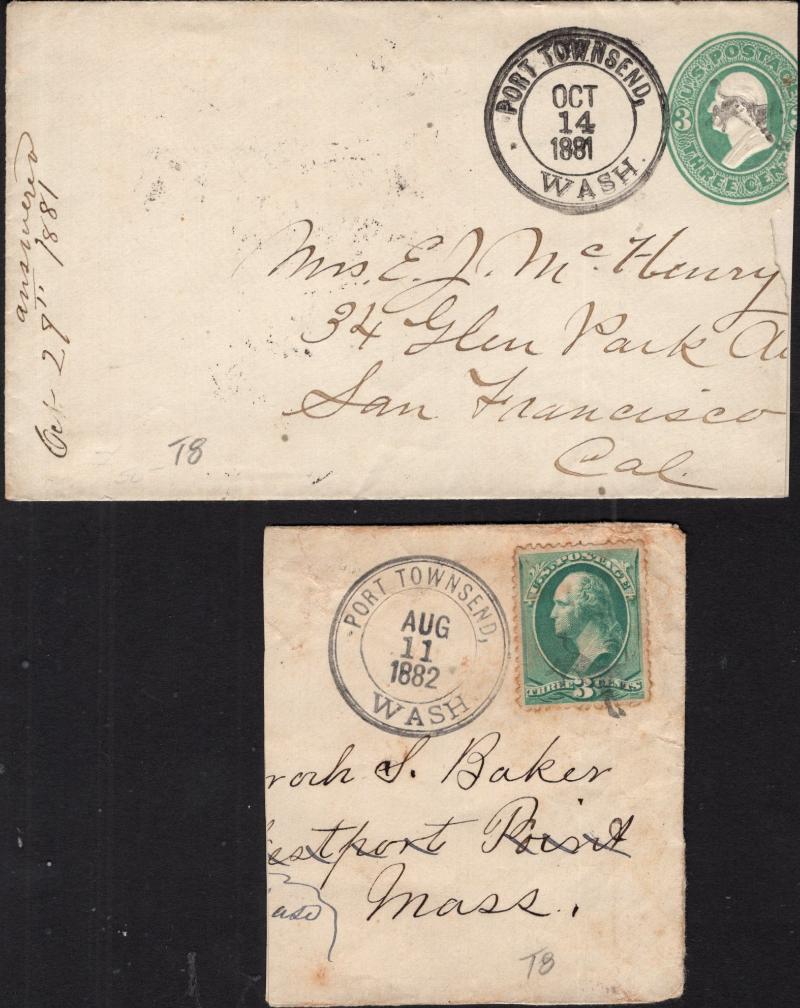 PORT TOWNSEND,
OCT
14
1881
WASH.
U.S. POSTAGE
3
THREE CENT
answered
Oct 29th 1881
Mrs. E. J. McHenry
34 Glen Park
San Francisco
Cal
T8
PORT TOWNSEND,
AUG
11
1882
WASH
U.S. POSTAGE
THREE 3 CENTS
S. Baker
estport Point
Mass.
T8